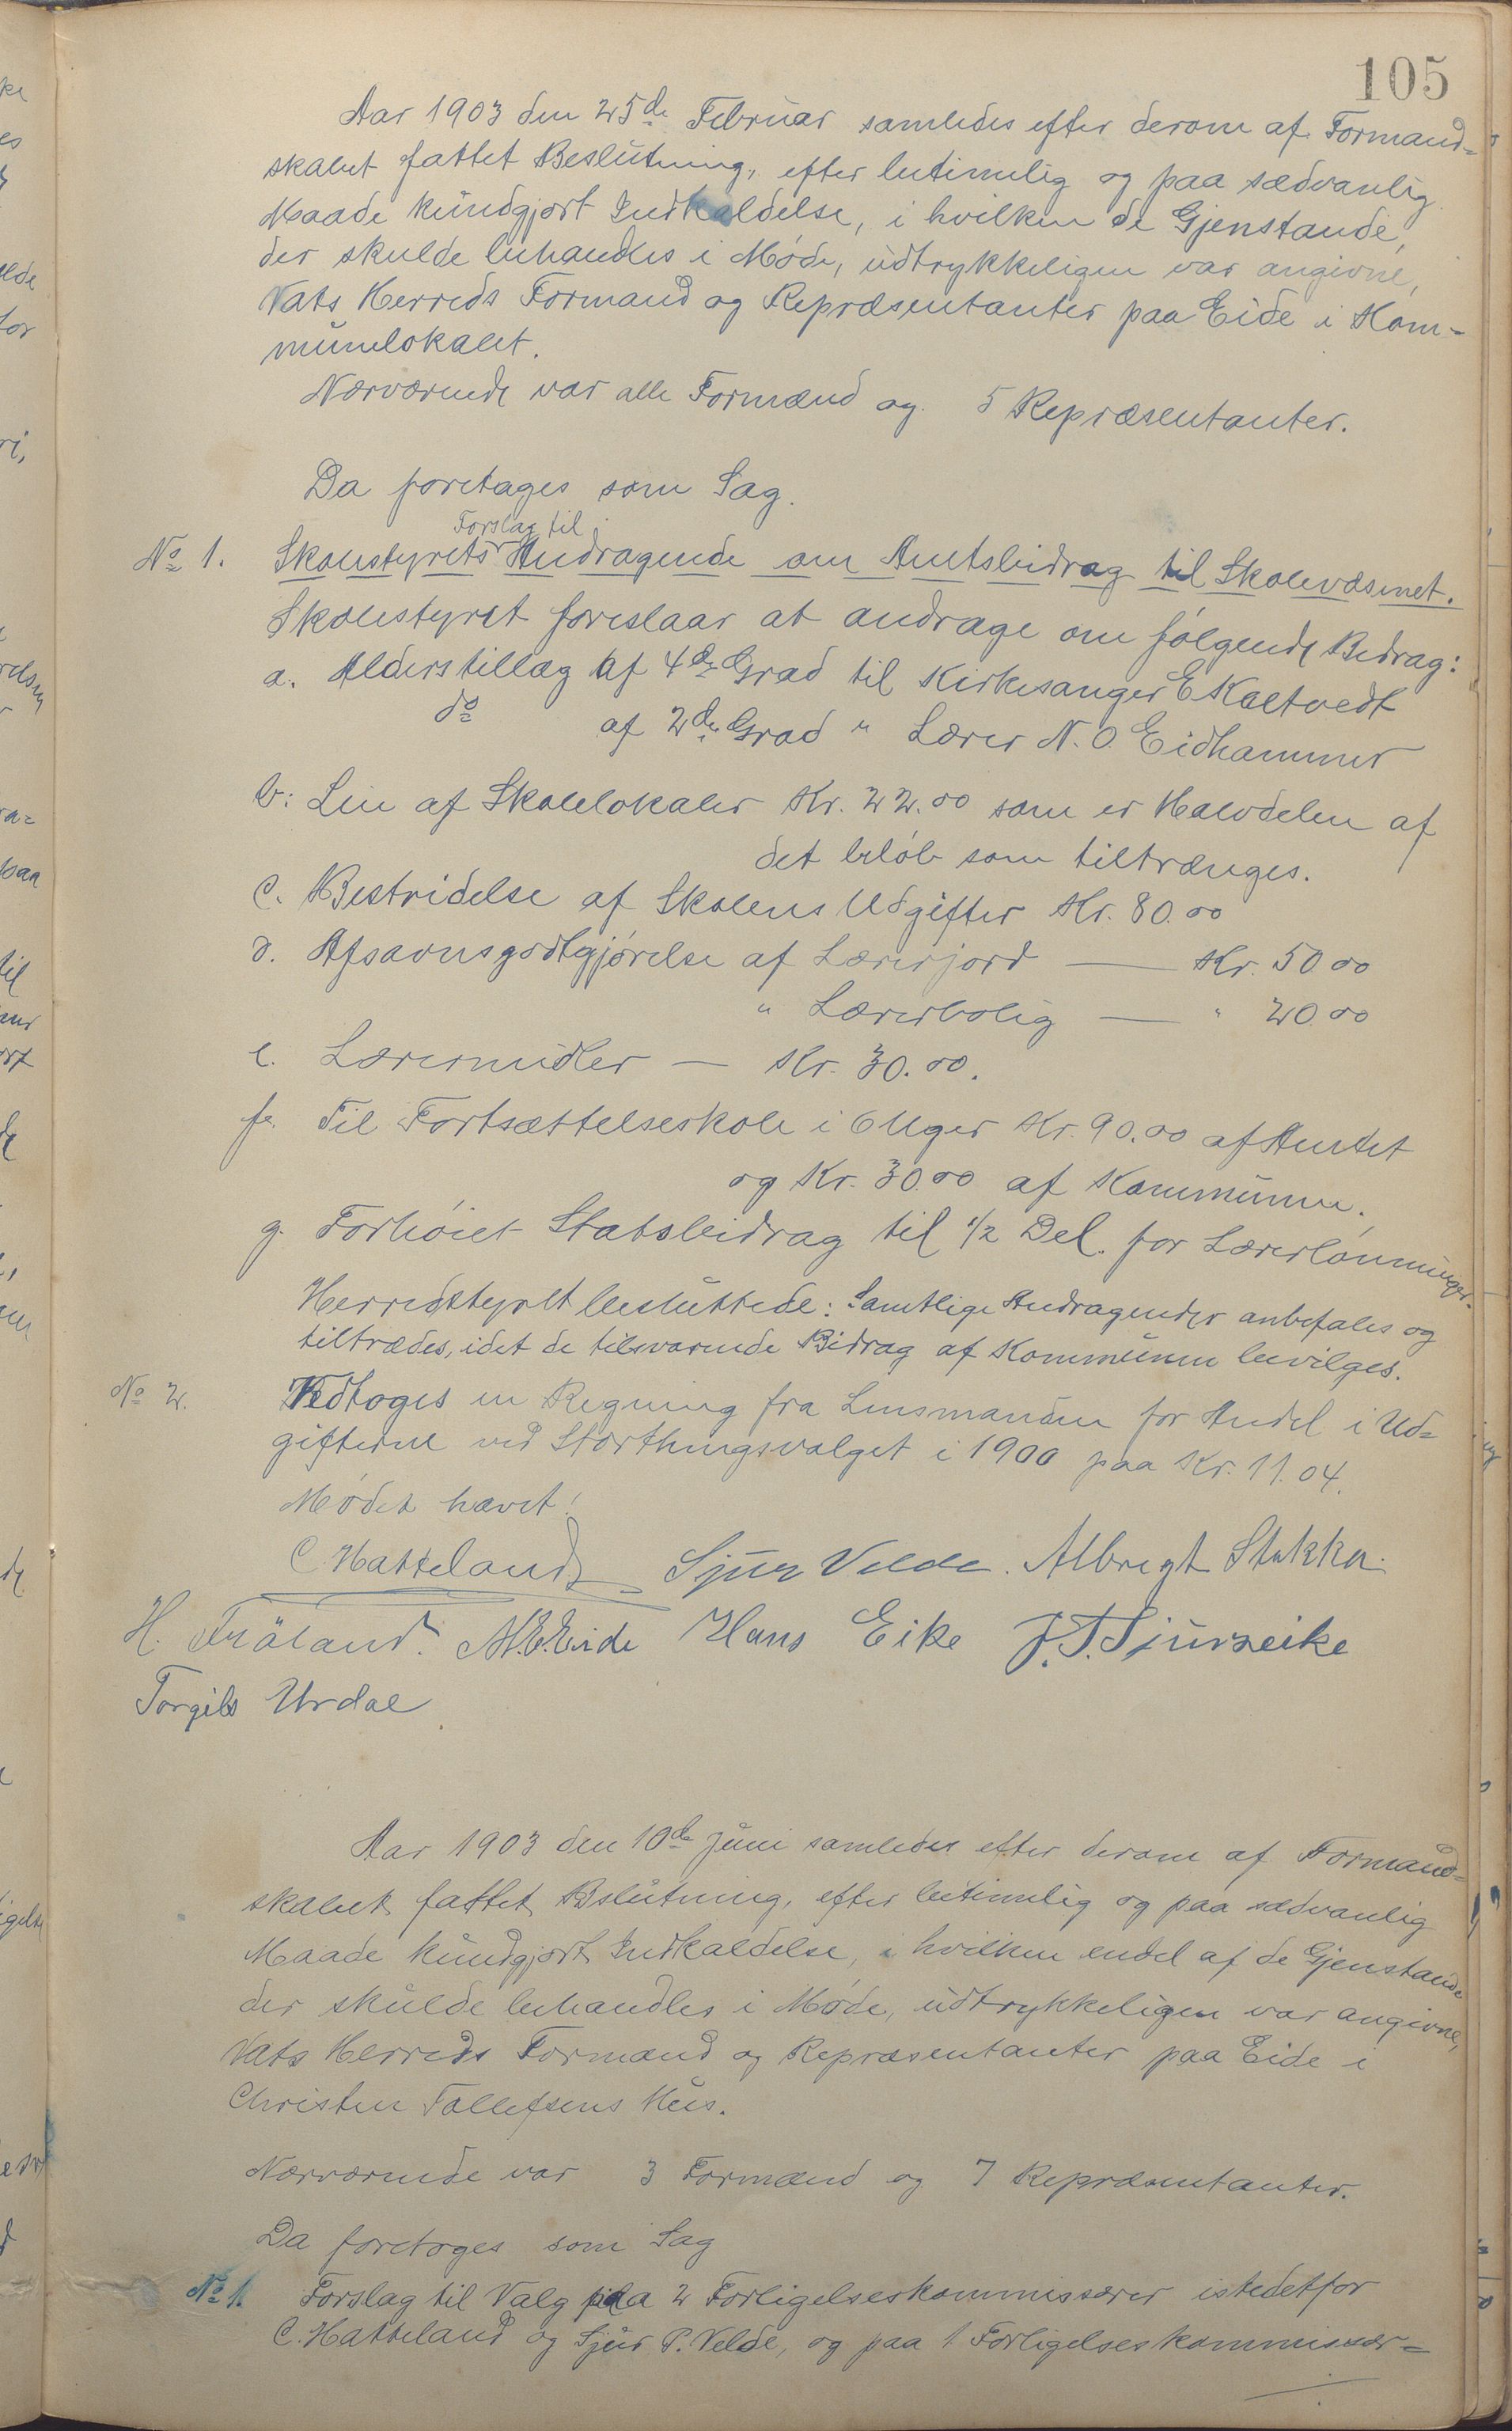 105
Aar 1903 den 25de Februar samledes efter derom af Formand-
skabet fattet Beslutning, efter betimelig og paa sædvanlig
Maade kundgjort Indkaldelse, i hvilken de Gjenstande,
der skulde behandles i Møde, udtrykkeligen var angivne,
Vats Herreds Formænd og Repræsentanter paa Eide i Kom-
munelokalet.
Nærværende var alle Formænd og 5 Repræsentanter.
Da foretages som Sag.
Forslag til
No 1. Skolestyrets Andragende om Amtsbidrag til Skolevæsenet.
Skolestyret foreslaar at andrage om følgende Bedrag:
a. Alderstillæg af 4de Grad til Kirkesanger E Kaltvedt
do af 2den Grad " Lærer N. O. Eidhammer
b: Leie af Skolelokaler Kr. 22.00 som er Halvdelen af
det beløb som tiltrænges.
c. Bestridelse af Skolens Udgifter Kr. 80.00
d. Afsavnsgodtgjørelse af Lærerjord — Kr. 50.00
" Lærerbolig — " 20.00
e. Lærermidler — Kr. 30.00.
f. Til Fortsættelseskole i 6 Uger Kr. 90.00 af Amtet
og Kr. 30.00 af Kommunen.
g. Forhøiet Statsbidrag til 1/2 Del. for Lærerlønninger.
Herredstyret besluttede: Samtlige Andragender anbefales og
tiltrædes, idet de tilsvarende Bidrag af Kommunen bevilges.
No 2. Vedtoges en Regning fra Lensmanden for Andel i Ud-
gifterne ved Storthingsvalget i 1900 paa Kr. 11.04.
Mødet hævet!
C. Hatteland Sjur Velde. Albregt Stakka.
H. Frøland. N. E. Eide Hans Eike J. T. Sjurseike
Torgils Urdal
Aar 1903 den 10de Juni samledes efter derom af Formand-
skabet fattet Bslutning, efter betimelig og paa sædvanlig
Maade kundgjort Indkaldelse, i hvilken endel af de Gjenstande
der skulde behandles i Møde, udtrykkeligen var angivne,
Vats Herreds Formænd og Repræsentanter paa Eide i
Christen Tollefsens Hus.
Nærværende var 3 Formænd og 7 Repræsentanter.
Da foretoges som Sag
No 1. Forslag til Valg paa 2 Forligelseskommissærer istedetfor
C. Hatteland og Sjur P. Velde, og paa 1 Forligelseskommissær-